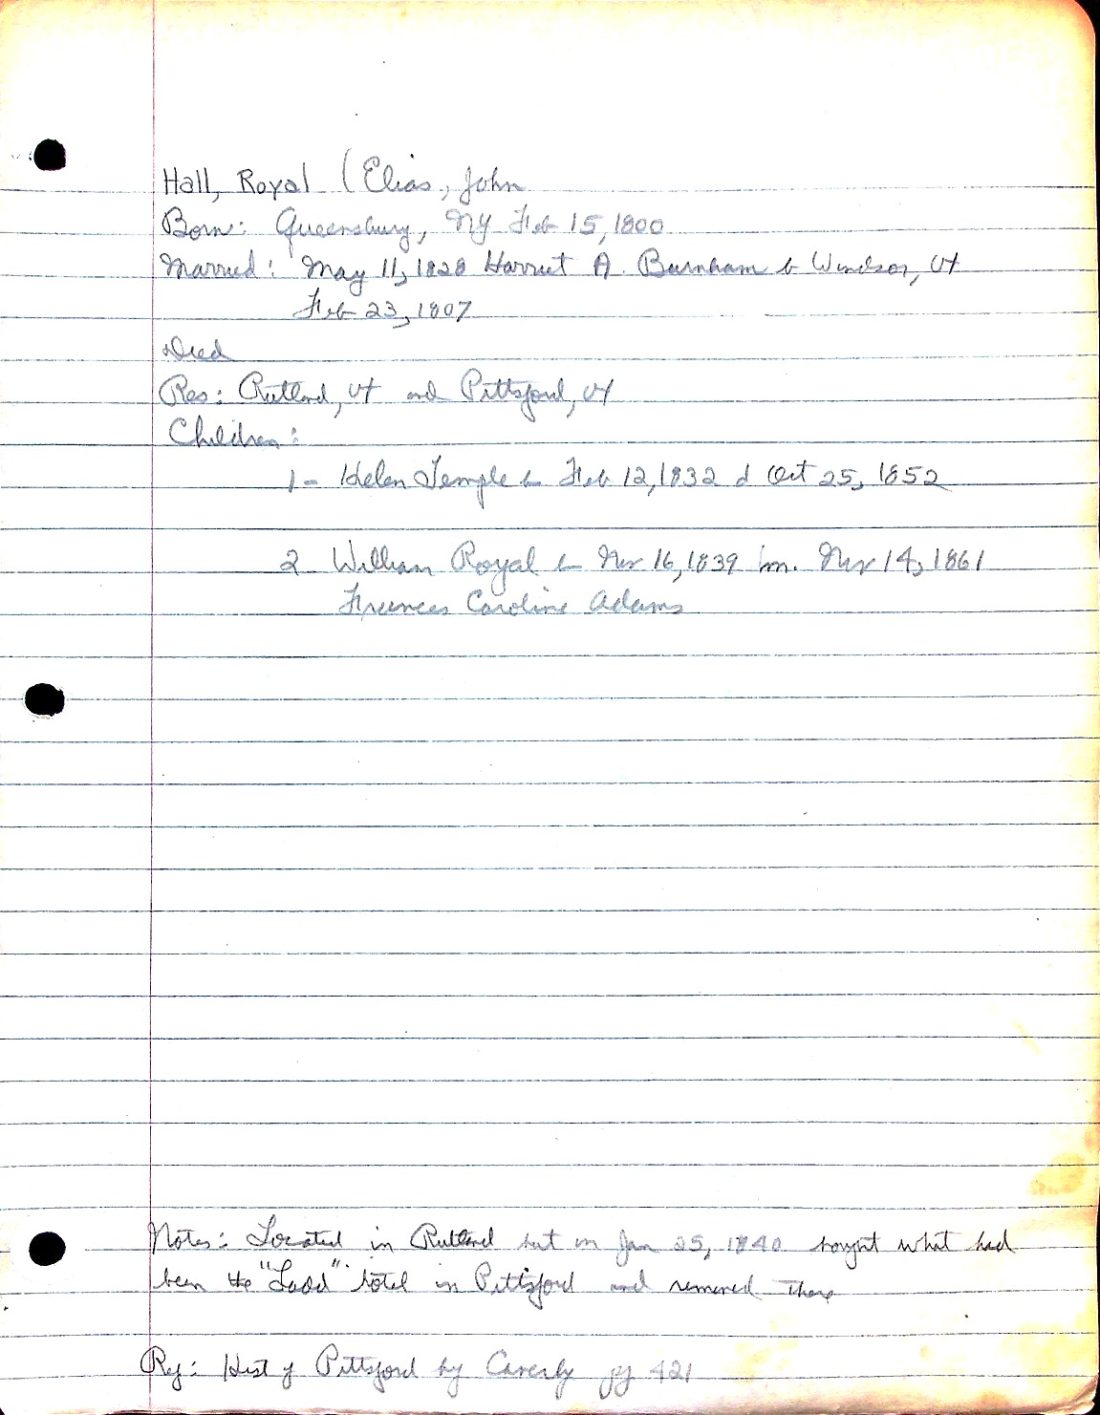 Hall, Royal (Elias, John
Born: Queensbury, NY Feb 15, 1800
Married: May 11, 1828 Harriet A. Burnham b Windsor, Vt
Feb 23, 1807
Died
Res: Rutland, Vt and Pittsford, Vt
Children:
1- Helen Temple b Feb 12, 1832 d Oct 25, 1852
2- William Royal b Nov 16, 1839 m. Nov 14, 1861
Frances Caroline Adams
Notes: Located in Rutland but on Jan 25, 1840 bought what had
been the "Ladd" hotel in Pittsford and removed there
Ref: Hist of Pittsford by Caverly pg 421